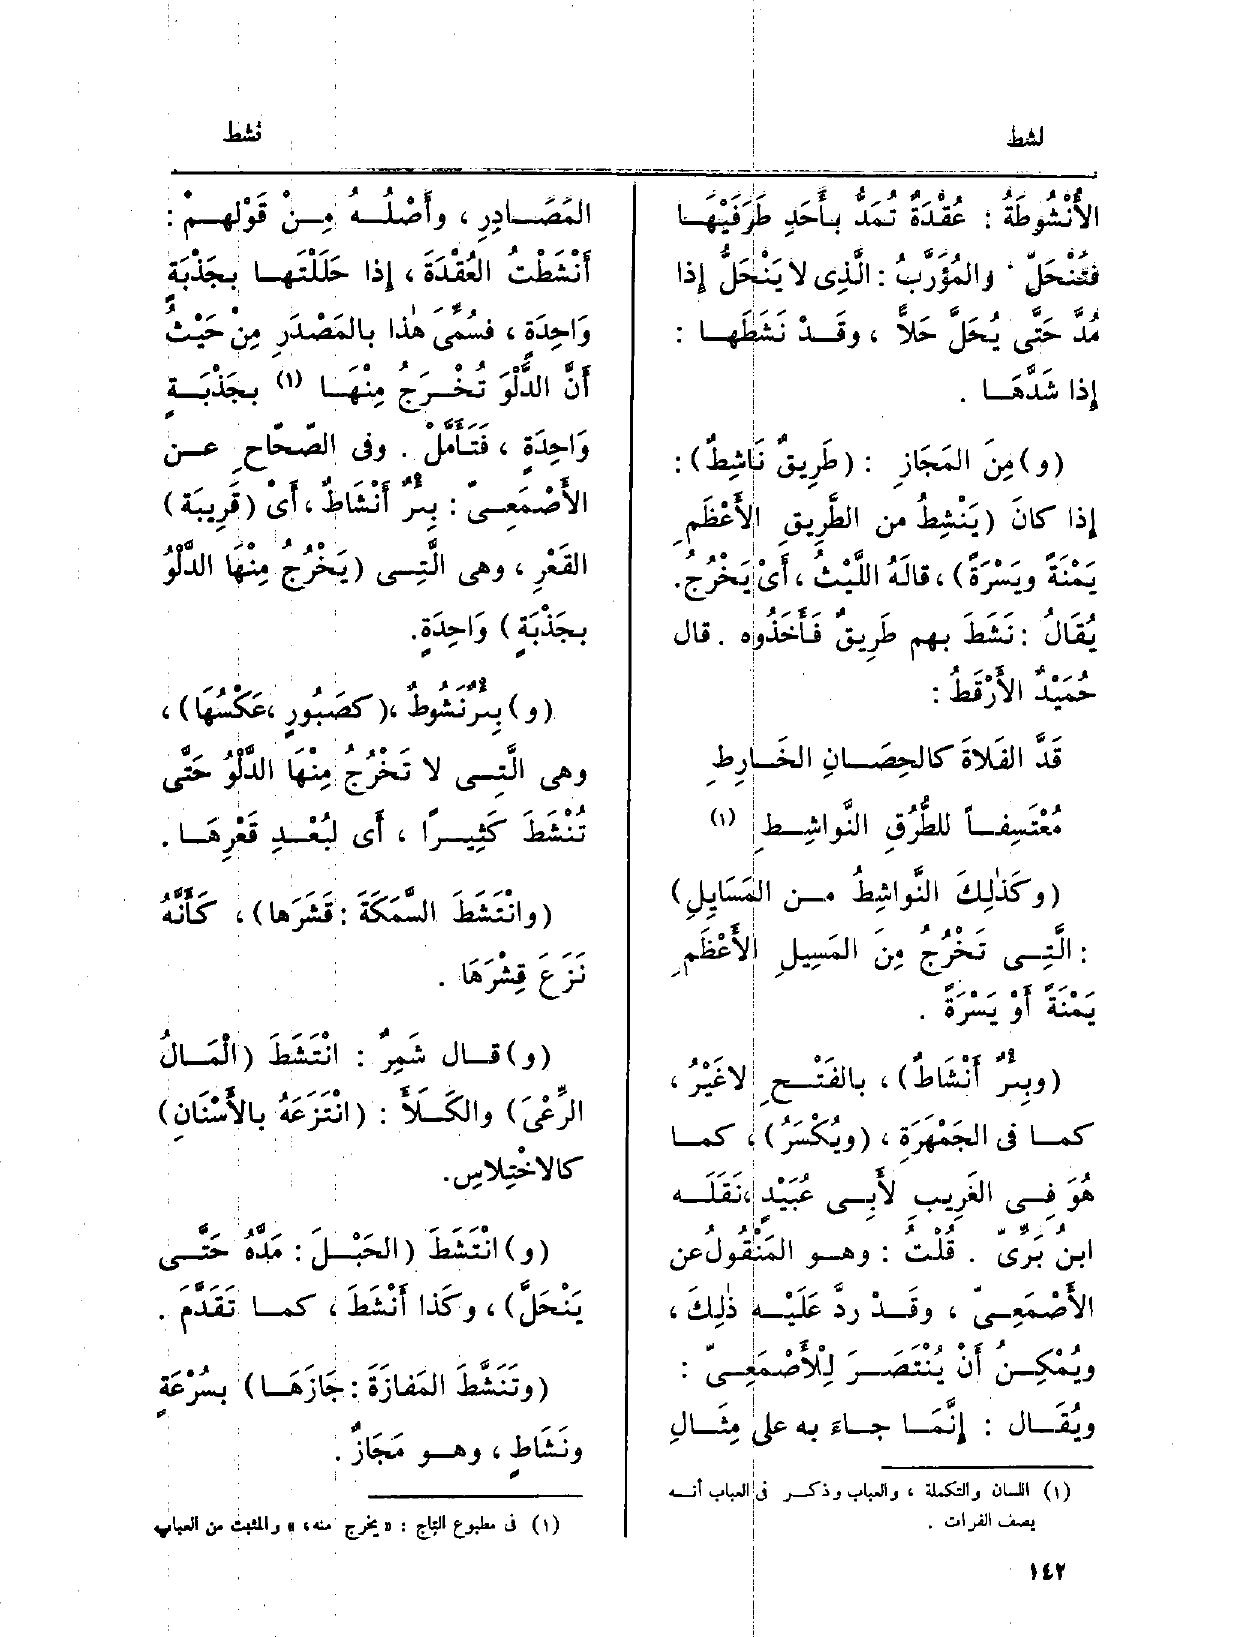 لشط
نشط
الأُنْشُوطَةُ : عُقْدَةٌ تُمَدُّ بأَحَدِ طَرَفَيْهَا
فتَنْحَلّ . والمُؤَرَّبُ : الَّذِى لا يَنْحَلُّ إِذا
مُدَّ حَتَّى يُحَلَّ حَلاًّ ، وقَد نَشَطَهـا :
إِذا شَدَّهَا .
(و) مِنَ المَجَازِ : (طَرِيقٌ نَاشِطٌ) :
إِذا كانَ (يَنْشِطُ من الطَّرِيقِ الأَعْظَمِ
يَمْنَةً ويَسْرَةً) ، قالَهُ اللَّيْثُ ، أَىْ يَخْرُج.
يُقَالُ : نَشَطَ بهم طَرِيقٌ فَأَخَذُوه . قال
حُمَيْدٌ الأَرْقَطُ :
قَدَّ الفَلاةَ كالحِصَانِ الخَارِطِ
مُعْتَسِفاً للطُّرُقِ النَّواشِطِ (١)
(وكَذٰلِكَ النَّواشِطُ من المَسَايِلِ)
: الَّتِى تَخْرُجُ مِنَ المَسِيلِ الأَعْظَمِ
يَمْنَةً أَوْ يَسْرَةً .
(وبِئْرٌ أَنْشَاطٌ) ، بالفَتْحِ لاغَيْرُ ،
كما فى الجَمْهَرَةِ ، (ويُكْسَرُ) ، كما
هُوَ فِى الغَرِيبِ لأَبِى عُبَيْدٍ ، نَقَلَه
ابنُ بَرِّىّ . قُلْتُ : وهو المَنْقُولُ عن
الأَصْمَعِىّ ، وقَدْ ردَّ عَلَيْه ذٰلِكَ ،
ويُمْكِنُ أَنْ يُنْتَصَرَ لِلْأَصْمَعِىّ :
ويُقَال : إِنَّمَا جاءَ به على مِثَالِ
(١) اللسان والتكملة ، والعباب وذكر فى العباب أنه
يصف الفرات .
المَصَادِرِ ، وأَصْلُهُ مِنْ قَوْلِهِمْ :
أَنْشَطْتُ العُقْدَةَ ، إِذا حَلَلْتَها بجَذْبَةٍ
وَاحِدَة ، فسُمِّىَ هٰذا بالمَصْدَرِ مِنْ حَيْثُ
أَنَّ الدَّلْوَ تُخْرَجُ مِنْهَا (١) بجَذْبَةٍ
وَاحِدَةٍ ، فَتَأَمَّلْ . وفى الصّحاحِ عن
الأَصْمَعِىّ : بِئْرٌ أَنْشَاطٌ ، أَىْ (قَرِيبَة)
القَعْرِ ، وهى الَّتِى (يَخْرُجُ مِنْهَا الدَّلْوُ
بجَذْبَةٍ) وَاحِدَةٍ.
(و) بِئْرٌ نَشُوطٌ ، (كصَبُورٍ ، عَكْسُهَا) ،
وهى الَّتِى لا تَخْرُجُ مِنْهَا الدَّلْوُ حَتَّى
تُنْشَطَ كَثِيرًا ، أَى لبُعْدِ قَعْرِهَا .
(وانْتَشَطَ السَّمَكَةَ : قَشَرَها) ، كَأَنَّهُ
نَزَعَ قِشْرَهَا .
(و) قال شَمِرٌ : انْتَشَطَ (الْمَالُ
الرِّعْىَ) والكَلَأَ : (انْتَزَعَهُ بالأَسْنَانِ)
كالاخْتِلاسِ.
(و) انْتَشَطَ (الحَبْلَ : مَدَّهُ حَتَّى
يَنْحَلَّ) ، وكَذا أَنْشَطَ ، كما تَقَدَّمَ .
(وتَنَشَّطَ المَفازَةَ : جَازَهَا) بسُرْعَةٍ
ونَشَاطٍ ، وهو مَجَازٌ .
(١) فى مطبوع التاج : « يخرج منه ، » والمثبت من العباب
١٤٢